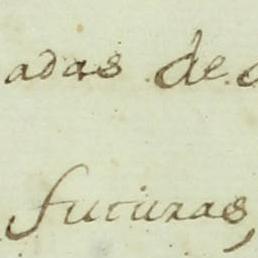 adas de
futuras,